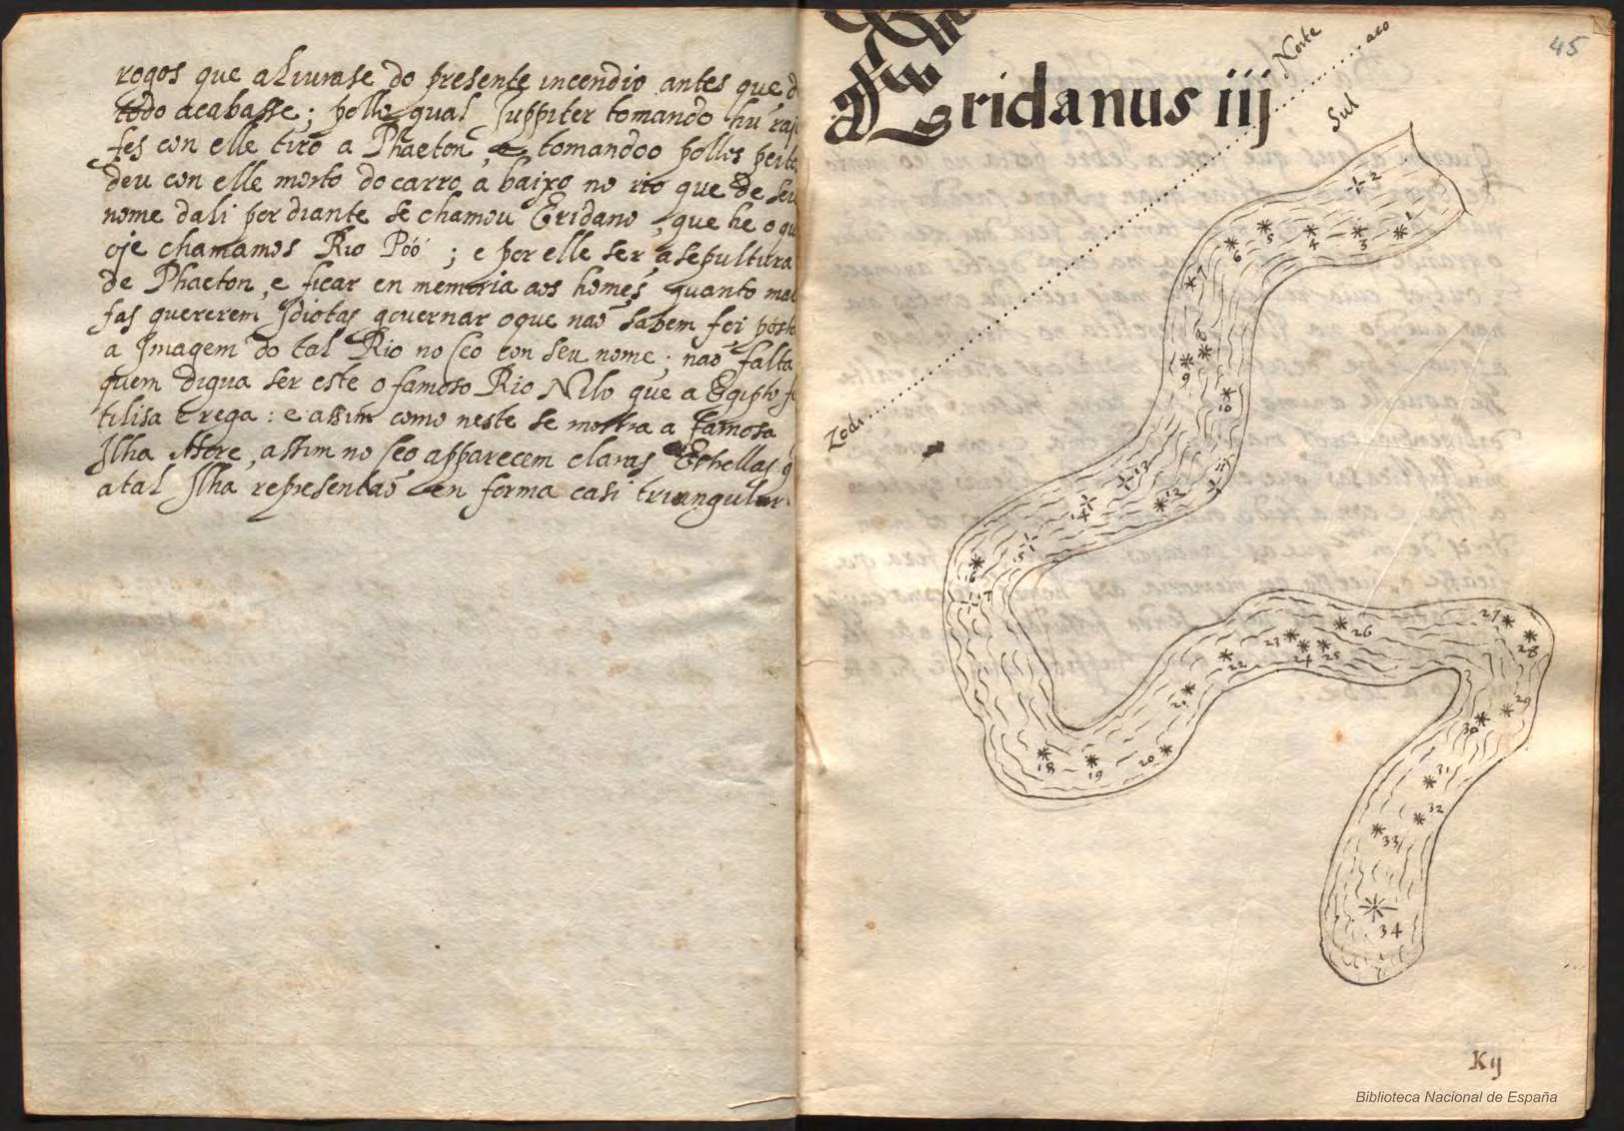 rogos que aLiurase do presente incendio antes que d
todo acabasse; pello qual Juppiter tomando hũ raj
fes con elle tiro a Phaeton, e tomandoo pellos peito
deu con elle morto do carro a baixo no rio que de seu
nome dali por diante se chamou Eridano, que he o qu
oje chamamos Rio Póó; e por elle ser a sepultura
de Phaeton, e ficar en memoria aos homẽs quanto mal
fas quererem Idiotas governar o que naõ sabem foi posto
a Imagem do tal Rio no seo con seu nome. naõ falta
quem digua ser este o famoso Rio Nilo que a Egipto fe
tilisa e rega: e assim como neste se mostra a famosa
Ilha Mere, assim no seo apparecem claras Esthellas q
a tal Ilha representaõ en forma casi triangular.
45
Eridanus iij
Norte
Sul
Zodi
aco
2
1
3
4
5
6
7
8
9
10
11
12
13
14
15
16
17
18
19
20
21
22
23
24
25
26
27
28
29
30
31
32
33
34
Kij
Biblioteca Nacional de España